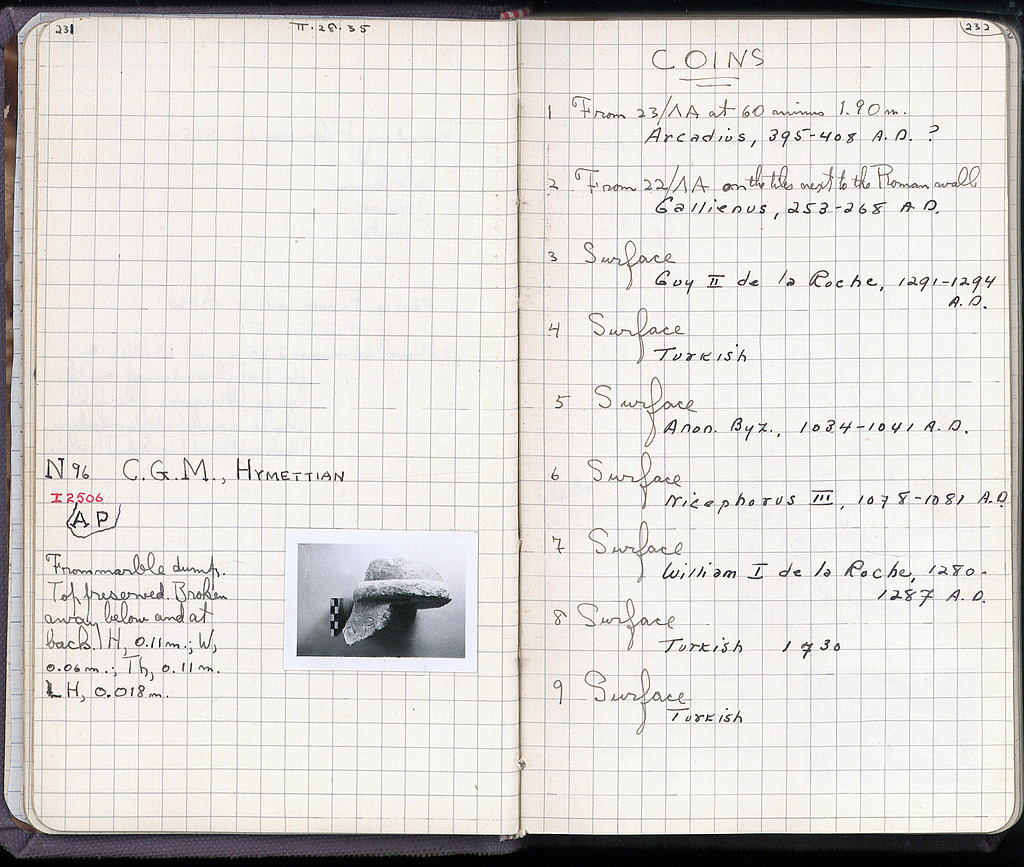 231
II·28·35
N 96 C.G.M., HYMETTIAN
I 2506
A P
From marble dump.
Top preserved. Broken
away below and at
back. H, 0.11m.; W,
0.06m.; Th, 0.11m.
LH, 0.018m.
232
COINS
1 From 23/ΛΑ at 60 minus 1.90 m.
Arcadius, 395-408 A.D. ?
2 From 22/ΛΑ on the tiles next to the Roman wall
Gallienus, 253-268 A.D.
3 Surface
Guy II de la Roche, 1291-1294
A.D.
4 Surface
Turkish
5 Surface
Anon. Byz., 1034-1041 A.D.
6 Surface
Nicephorus III, 1078-1081 A.D.
7 Surface
William I de la Roche, 1280-
1287 A.D.
8 Surface
Turkish 1730
9 Surface
Turkish